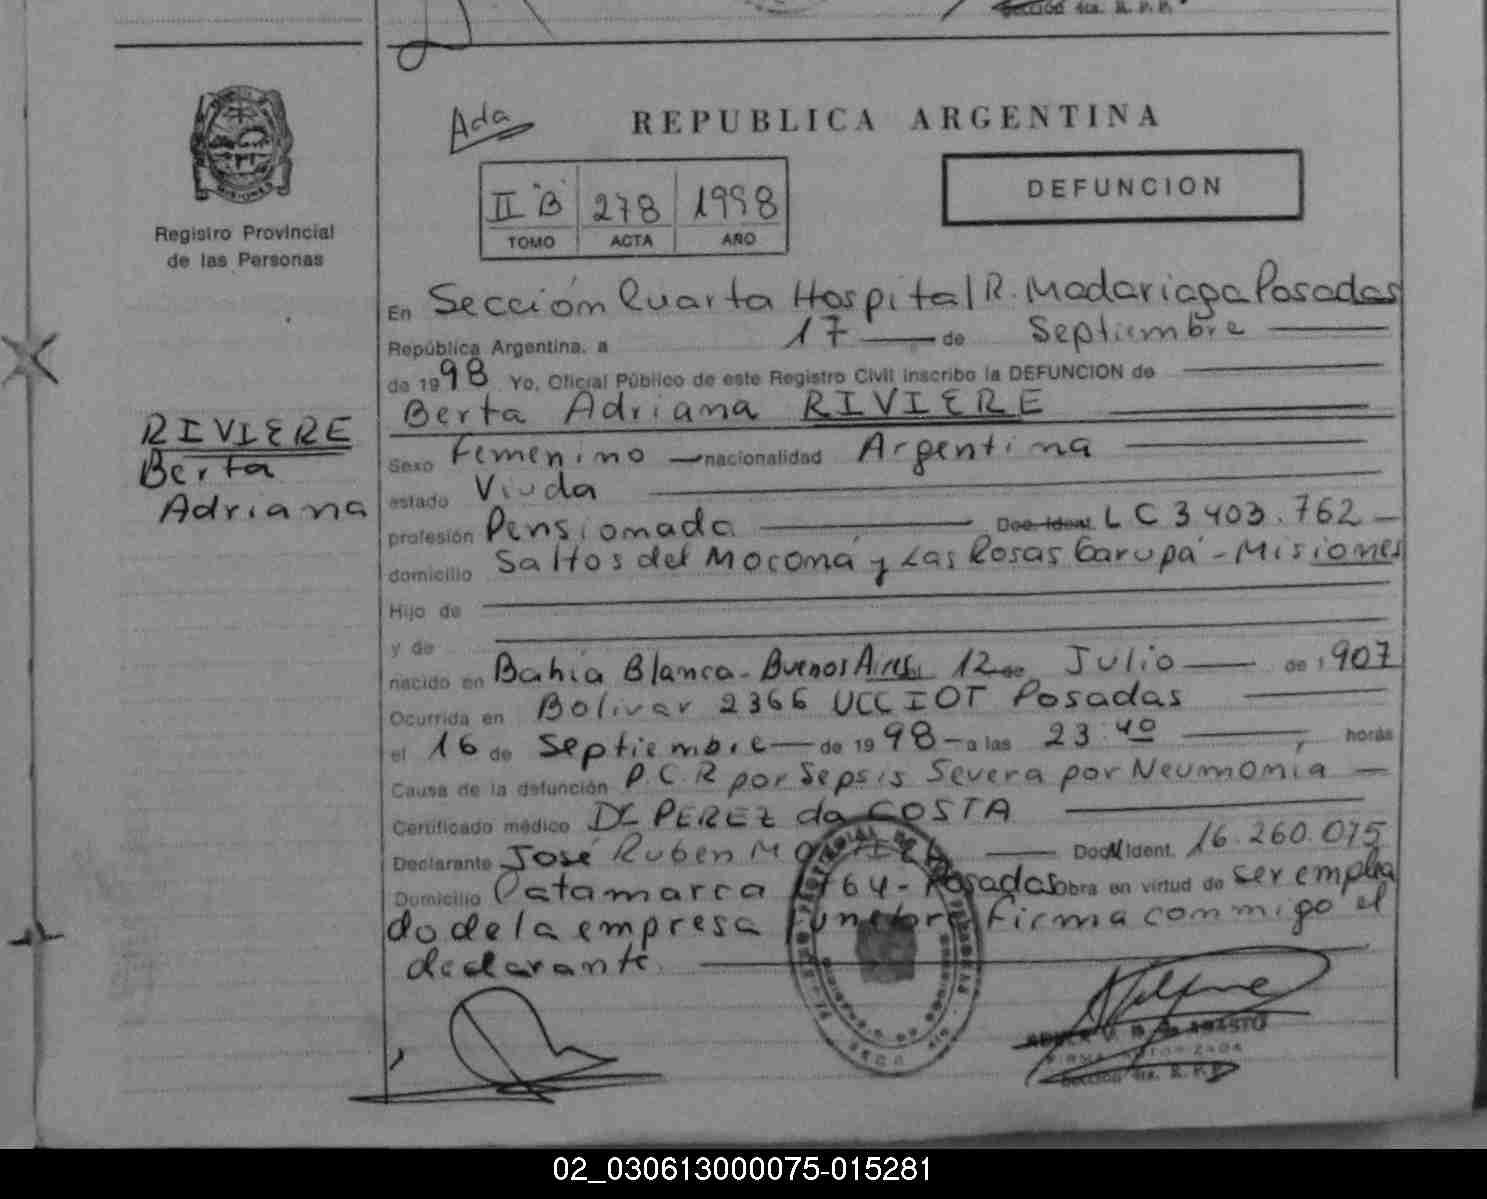 Sección 4ta. R. P. P.
Ada
REPUBLICA ARGENTINA
MISIONES
Registro Provincial
de las Personas
II "B" 278 1998
TOMO ACTA AÑO
DEFUNCION
En Sección Cuarta Hospital R. Madariaga Posadas
República Argentina, a 17 de Septiembre
de 1998 Yo, Oficial Público de este Registro Civil inscribo la DEFUNCION de
Berta Adriana RIVIERE
RIVIERE
Berta
Adriana
Sexo Femenino nacionalidad Argentina
estado Viuda
profesión Pensionada Doc. Ident. LC 3403.762
domicilio Saltos del Moconá y Las Rosas Garupá - Misiones
Hijo de
y de
nacido en Bahía Blanca - Buenos Aires 12 de Julio de 1907
Ocurrida en Bolivar 2366 UCCIOT Posadas
el 16 de Septiembre de 1998 a las 23:40 horas
Causa de la defunción P.C.R por Sepsis Severa por Neumonia
Certificado médico DL PEREZ da COSTA
Declarante José Ruben Doc N Ident. 16.260.075
Domicilio Catamarca Posadas obra en virtud de ser emplea
do de la empresa funebre firma conmigo el
declarante.
FIRMA AUTORIZADA
Sección 4ta. R. P. P.
02_030613000075-015281